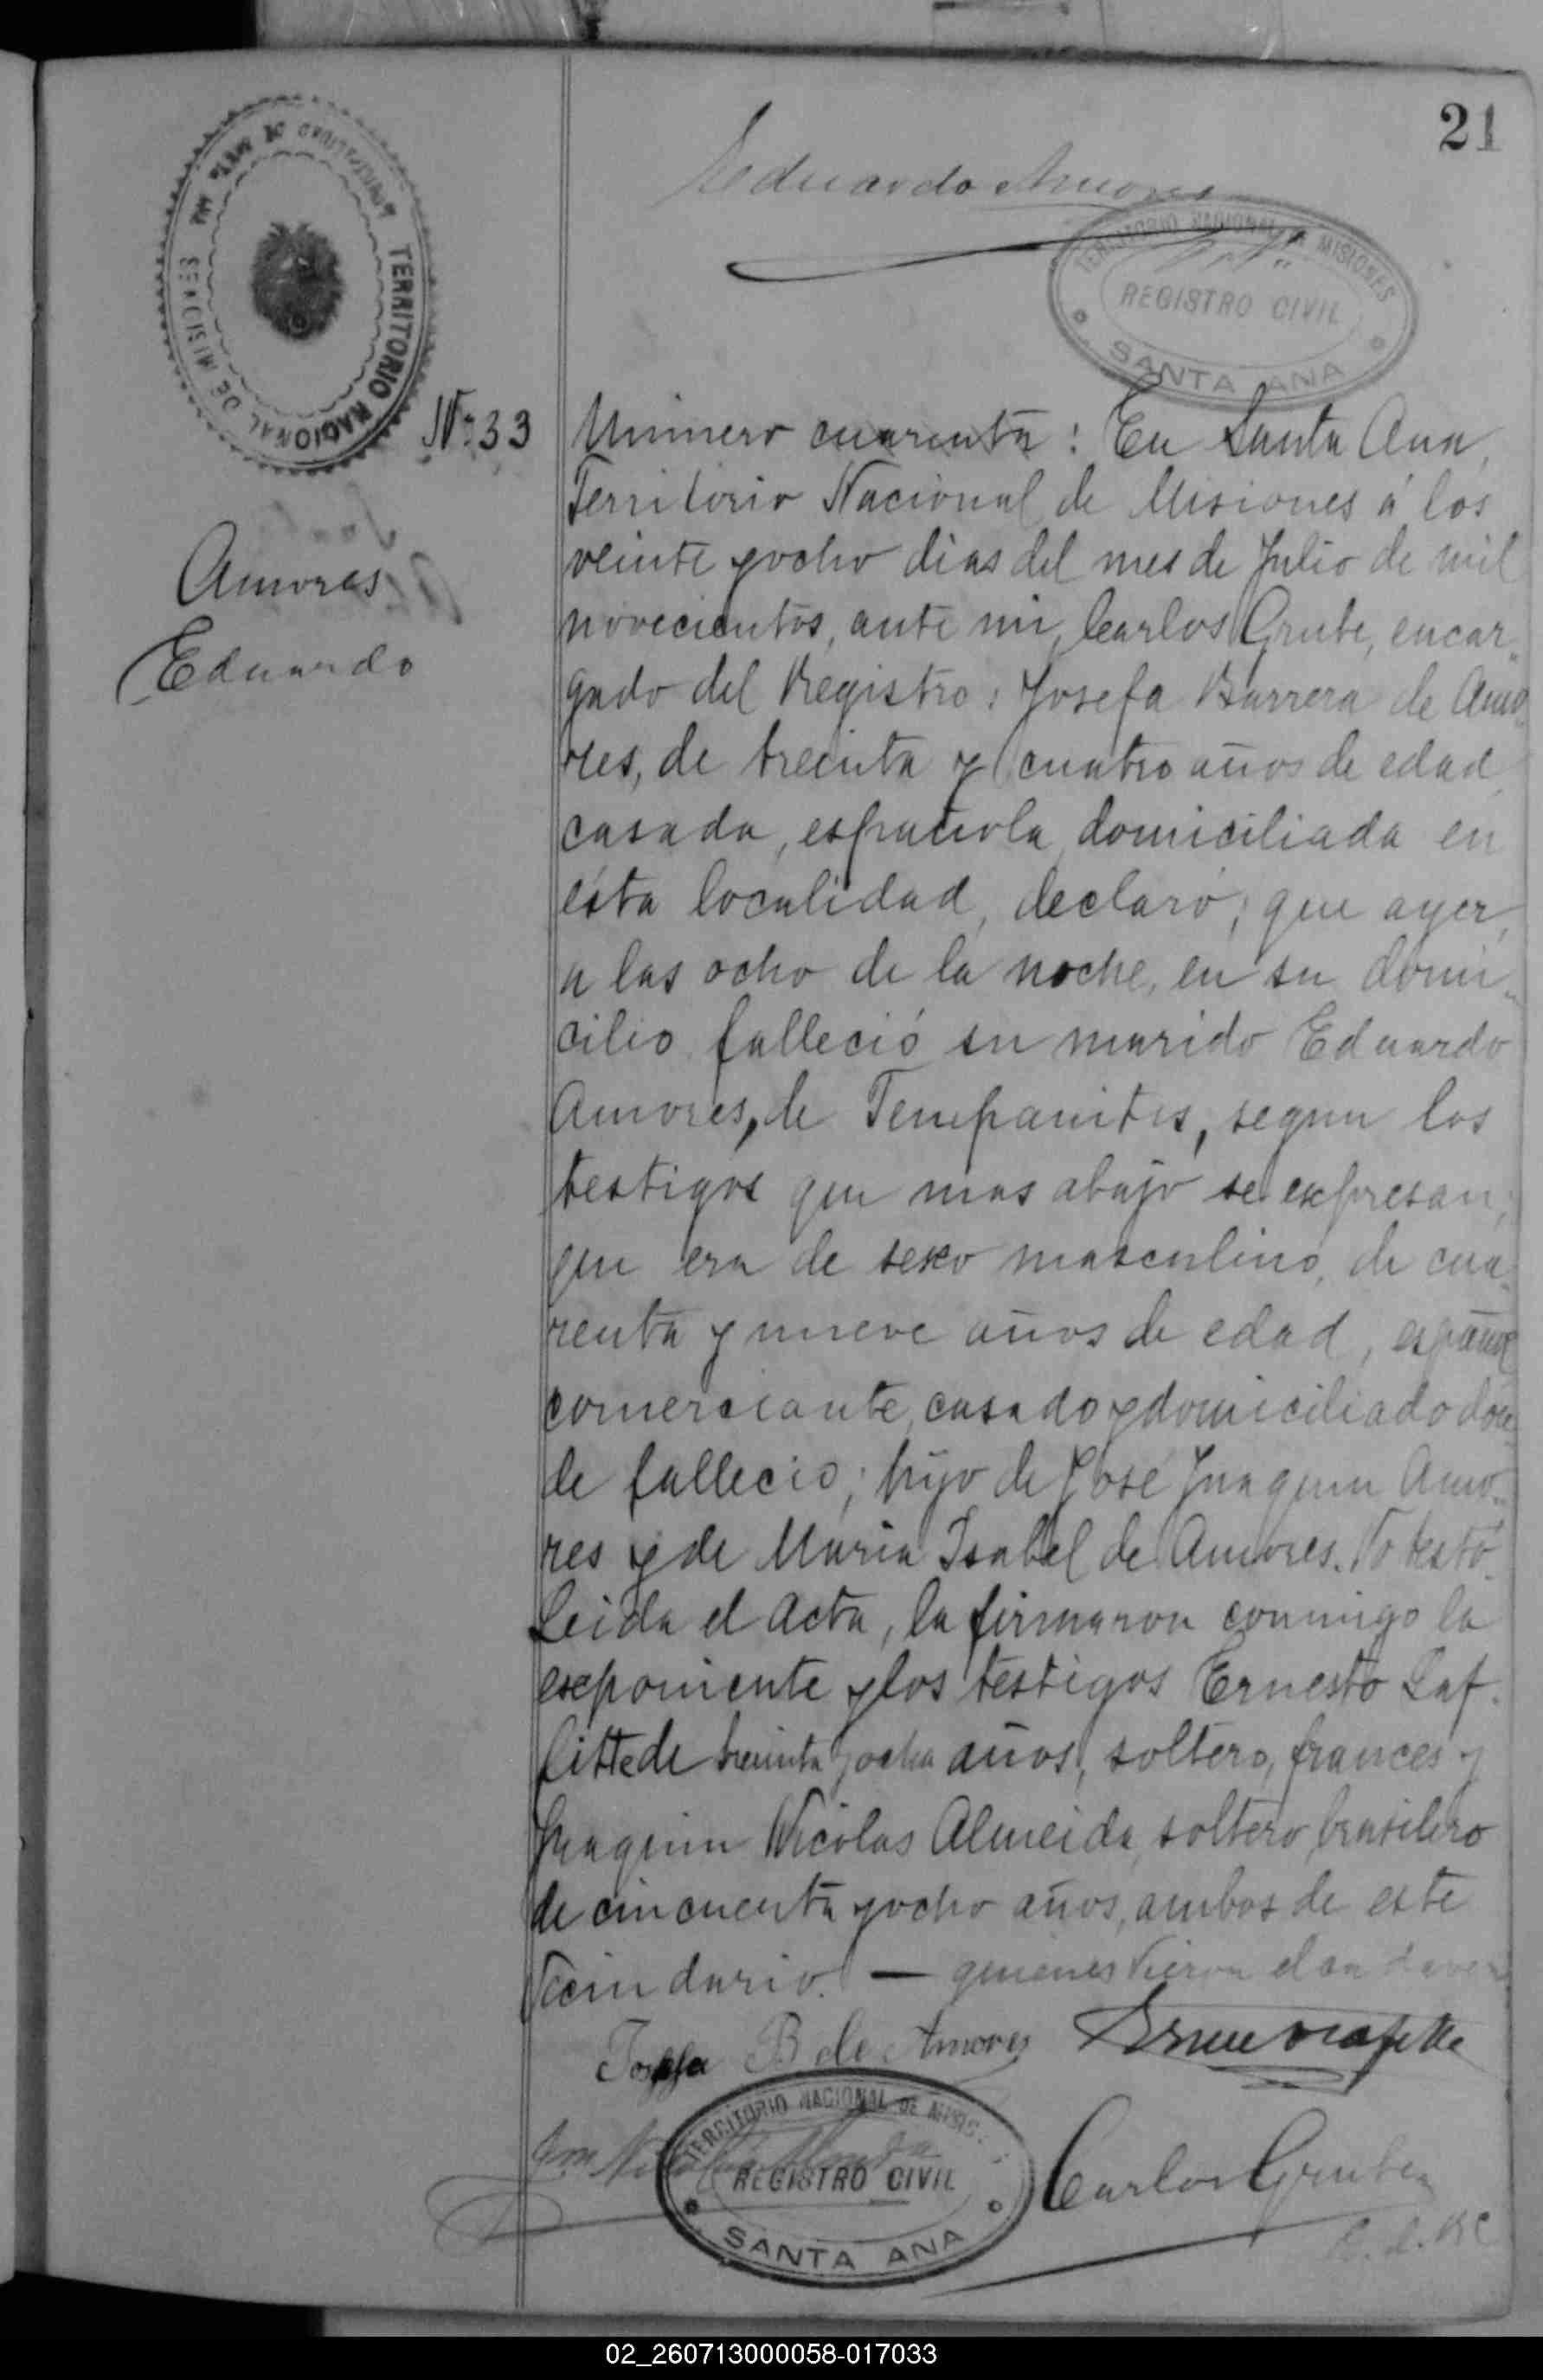 21
Eduardo Amores
TERRITORIO NACIONAL DE MISIONES
REGISTRO CIVIL
SANTA ANA
TERRITORIO NACIONAL DE MISIONES
Nº 33
Amores
Eduardo
Número cuarenta: En Santa Ana,
Territorio Nacional de Misiones á los
veinte y ocho dias del mes de Julio de mil
novecientos, ante mi, Carlos Grube, encar-
gado del Registro: Josefa Barrera de Amo-
res, de treinta y cuatro años de edad,
casada, española, domiciliada en
ésta localidad, declaró; que ayer,
a las ocho de la noche, en su domi-
cilio falleció su marido Eduardo
Amores, de Tempanitis, segun los
testigos que mas abajo se expresan;
que era de sexo masculino, de cua-
renta y nueve años de edad, español
comerciante, casado y domiciliado don-
de falleció; hijo de José Juaquin Amo-
res y de Maria Isabel de Amores. No testó.
Leida el Acta, la firmaron conmigo la
exponiente y los testigos Ernesto Laf-
fitte de treinta y ocho años, soltero, frances y
Juaquin Nicolas Almeida, soltero, brasilero
de cincuenta y ocho años, ambos de este
vecindario. — quienes vieron el cadaver
Josefa B de Amores
TERRITORIO NACIONAL DE MISIO
REGISTRO CIVIL
SANTA ANA
Carlos Grube
02_260713000058-017033